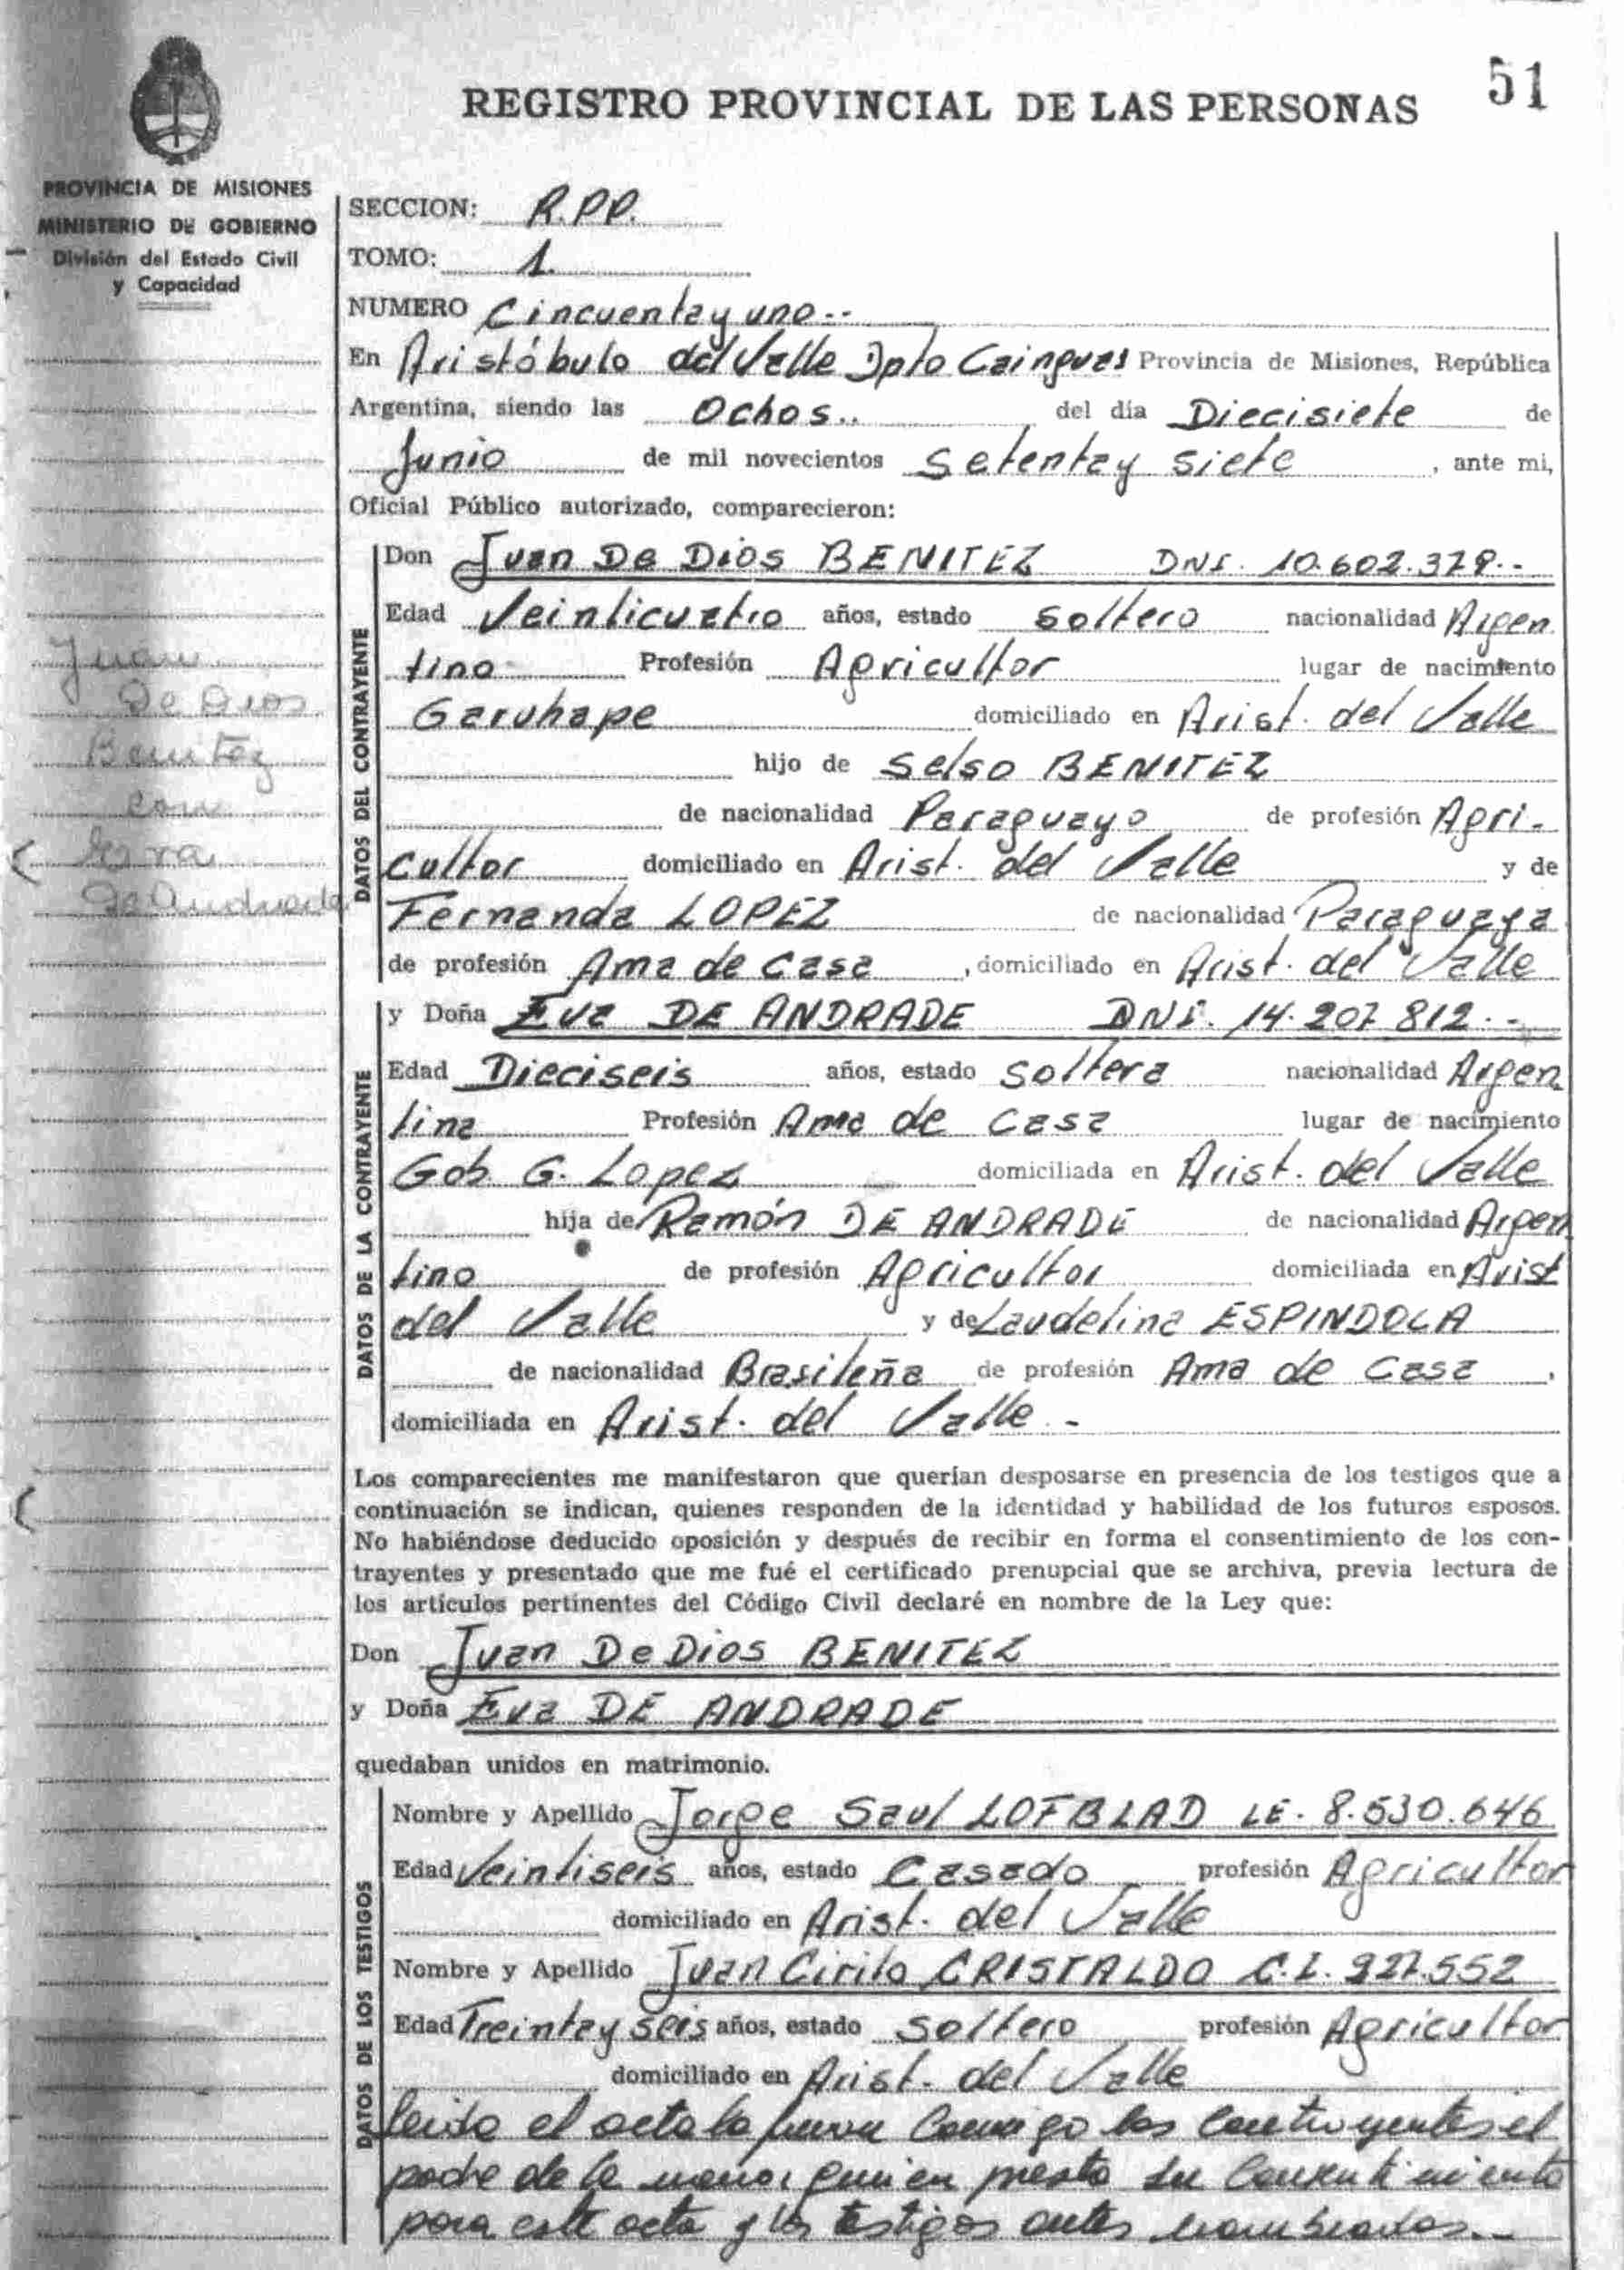 51
REGISTRO PROVINCIAL DE LAS PERSONAS
PROVINCIA DE MISIONES
MINISTERIO DE GOBIERNO
División del Estado Civil
y Capacidad
SECCION: R.P.P.
TOMO: 1.
NUMERO Cincuenta y uno.--
En Aristóbulo del Valle Dpto Cainguas Provincia de Misiones, República
Argentina, siendo las Ochos.. del día Diecisiete de
Junio de mil novecientos Setenta y siete, ante mi,
Oficial Público autorizado, comparecieron:
DATOS DEL CONTRAYENTE
Don Juan De Dios BENITEZ DNI. 10.602.378.-
Edad Veinticuatro años, estado soltero nacionalidad Argen
tino Profesión Agricultor lugar de nacimiento
Garuhape domiciliado en Arist. del Valle
hijo de Selso BENITEZ
de nacionalidad Paraguayo de profesión Agri-
cultor domiciliado en Arist. del Valle y de
Fernanda LOPEZ de nacionalidad Paraguaya
de profesión Ama de Casa, domiciliado en Arist. del Valle
Juan
De Dios
Benitez
con
Eva
De Andrade
DATOS DE LA CONTRAYENTE
y Doña Eva DE ANDRADE DNI. 14.207.812.-
Edad Dieciseis años, estado soltera nacionalidad Argen
tina Profesión Ama de Casa lugar de nacimiento
Gob. G. Lopez domiciliada en Arist. del Valle
hija de Ramón DE ANDRADE de nacionalidad Argen
tino de profesión Agricultor domiciliada en Arist
del Valle y de Laudelina ESPINDOLA
de nacionalidad Brasileña de profesión Ama de Casa,
domiciliada en Arist. del Valle.-
Los comparecientes me manifestaron que querían desposarse en presencia de los testigos que a
continuación se indican, quienes responden de la identidad y habilidad de los futuros esposos.
No habiéndose deducido oposición y después de recibir en forma el consentimiento de los con-
trayentes y presentado que me fué el certificado prenupcial que se archiva, previa lectura de
los artículos pertinentes del Código Civil declaré en nombre de la Ley que:
Don Juan De Dios BENITEZ
y Doña Eva DE ANDRADE
quedaban unidos en matrimonio.
DATOS DE LOS TESTIGOS
Nombre y Apellido Jorge Saul LOFBLAD LE. 8.530.646
Edad Veintiseis años, estado Casado profesión Agricultor
domiciliado en Arist. del Valle
Nombre y Apellido Juan Cirilo CRISTALDO C.I. 227.552
Edad Treinta y seis años, estado soltero profesión Agricultor
domiciliado en Arist. del Valle
leida el acta la firman conmigo los contrayentes el
padre de la menor quien presta su consentimiento
para este acto y los testigos antes nombrados.-